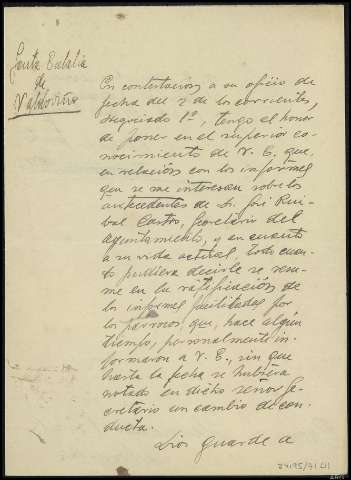 Santa Eulalia
de
Valdoviño
En contestacion a su oficio de
fecha del 2 de los corrientes,
negociado 1º, tengo el honor
de poner en el superior co-
nocimiento de V. E. que,
en relación con los informes
que se me interesan sobre los
antecedentes de D. José Rui-
bal Castro, Secretario del
Ayuntamiento, y en cuanto
a su vida actual, todo cuan-
to pudiera decirle se resu-
me en la ratificación de
los informes facilitados por
los párrocos, que, hace algún
tiempo, personalmente in-
formaron a V. E., sin que
hasta la fecha se hubiera
notado en dicho señor Se-
cretario un cambio de con-
ducta.
Dios guarde a